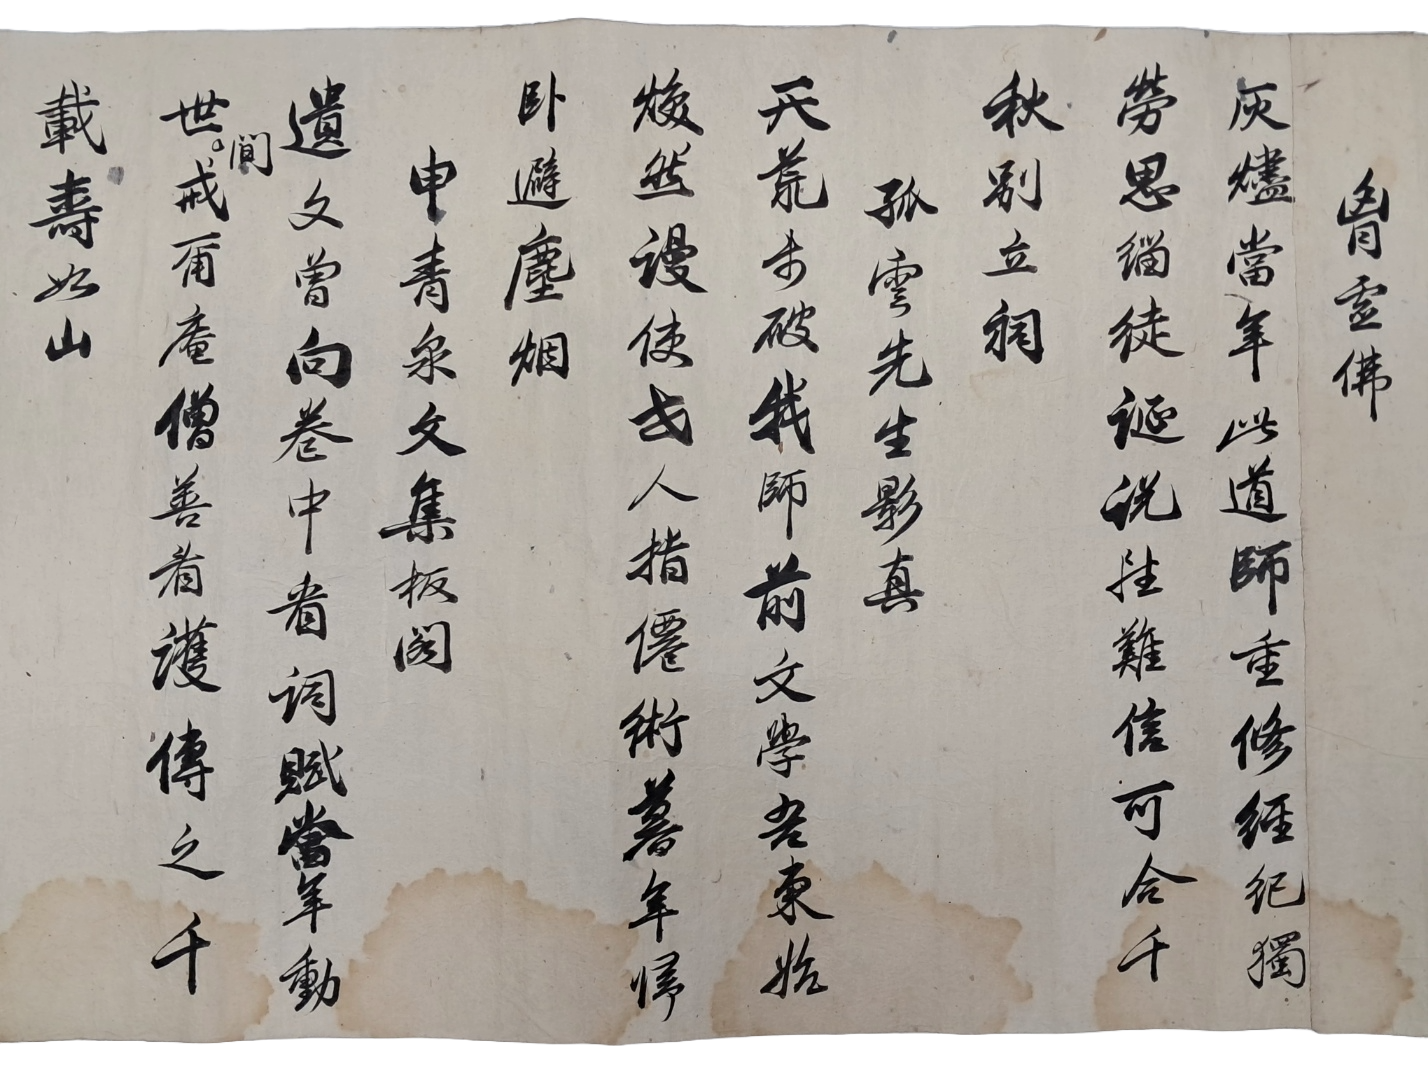 胷靈佛
灰燼當年此道師重修經紀獨
勞思緇徒誕說陛難信可合千
秋別立祠
孤雲先生影真
天荒步破我師前文學吾東始
煥然謾使世人指僊術暮年歸
臥避塵烟
申青泉文集板閣
遺文曾向卷中看詞賦當年動
世間戒爾庵僧善者護傳之千
載壽如山